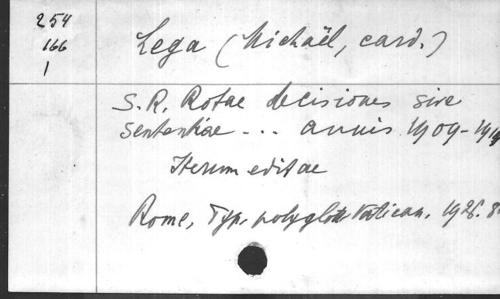 254
166
1
Lega (Michaël, card.)
S. R. Rotae decisiones sive
sententiae ... annis 1909-1914
Iterum editae
Rome, Typ. polyglott Vatican, 1926. 8